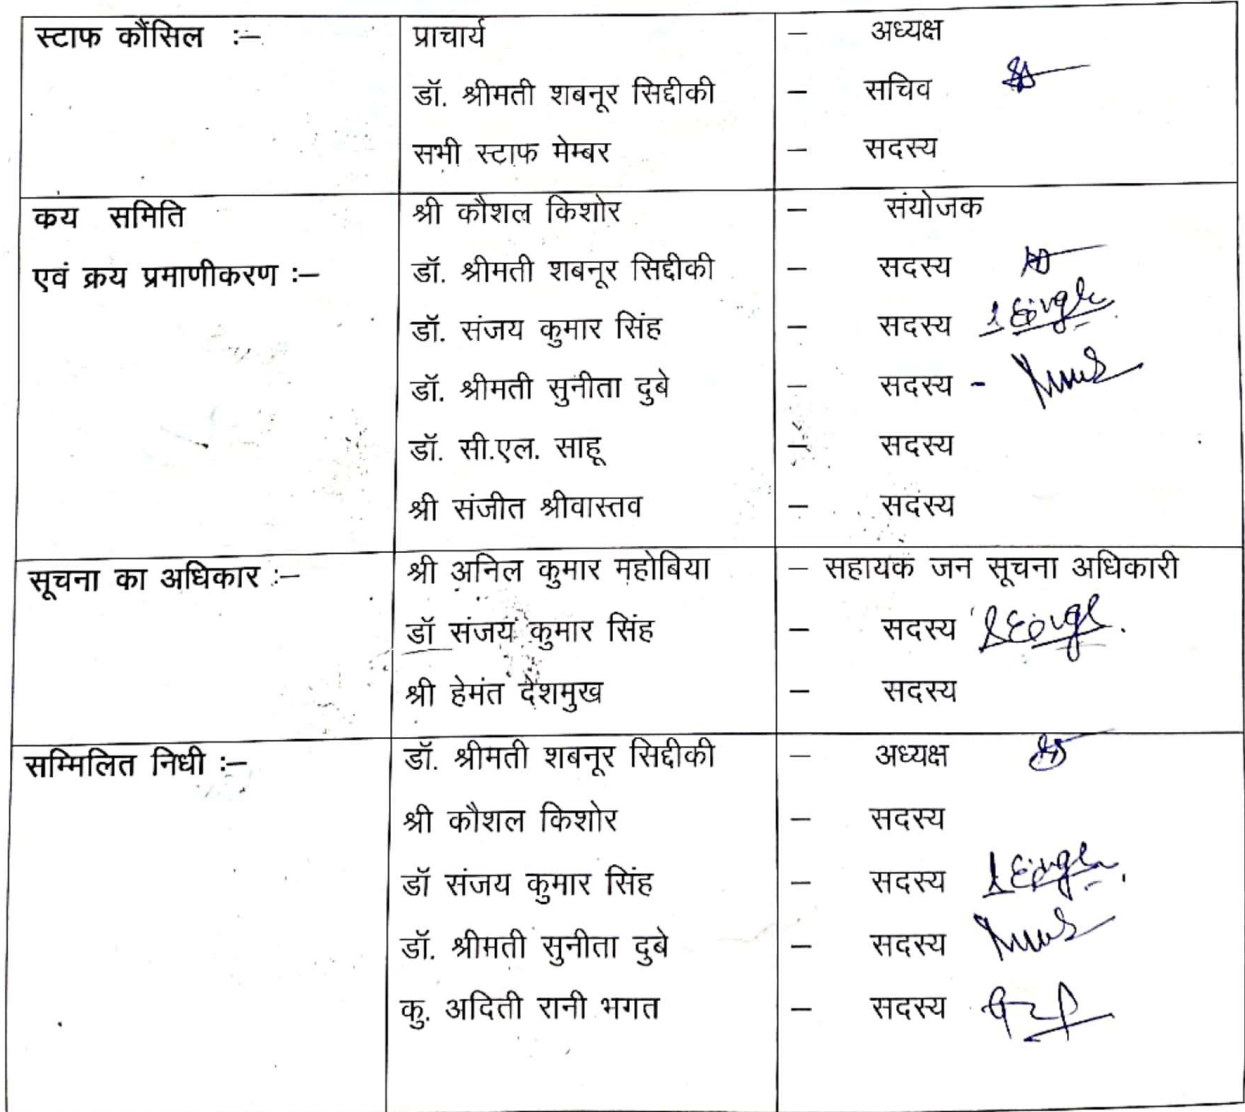 स्टाफ कौंसिल :– प्राचार्य – अध्यक्ष
डॉ. श्रीमती शबनूर सिद्दीकी – सचिव
सभी स्टाफ मेम्बर – सदस्य
कय समिति श्री कौशल किशोर – संयोजक
एवं क्रय प्रमाणीकरण :– डॉ. श्रीमती शबनूर सिद्दीकी – सदस्य
डॉ. संजय कुमार सिंह – सदस्य
डॉ. श्रीमती सुनीता दुबे – सदस्य -
डॉ. सी.एल. साहू – सदस्य
श्री संजीत श्रीवास्तव – सदस्य
सूचना का अधिकार :– श्री अनिल कुमार महोबिया – सहायक जन सूचना अधिकारी
डॉ संजय कुमार सिंह – सदस्य
श्री हेमंत देशमुख – सदस्य
सम्मिलित निधी :– डॉ. श्रीमती शबनूर सिद्दीकी – अध्यक्ष
श्री कौशल किशोर – सदस्य
डॉ संजय कुमार सिंह – सदस्य
डॉ. श्रीमती सुनीता दुबे – सदस्य
कु. अदिती रानी भगत – सदस्य